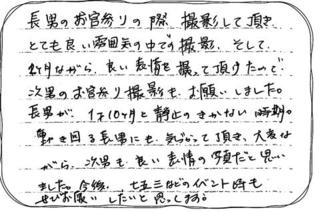 長男のお宮参りの際、撮影して頂き
とても良い雰囲気の中での撮影、そして
1ヶ月ながら、良い表情を撮って頂けたので
次男のお宮参り撮影も、お願いしました。
長男が、1才10ヶ月と静止のきかない時期。
動き回る長男にも、気づかって頂き、大変な
がら、次男も良い表情の写真だと思い
ました。今後、七五三などのイベント時も
ぜひお願いしたいと思います。